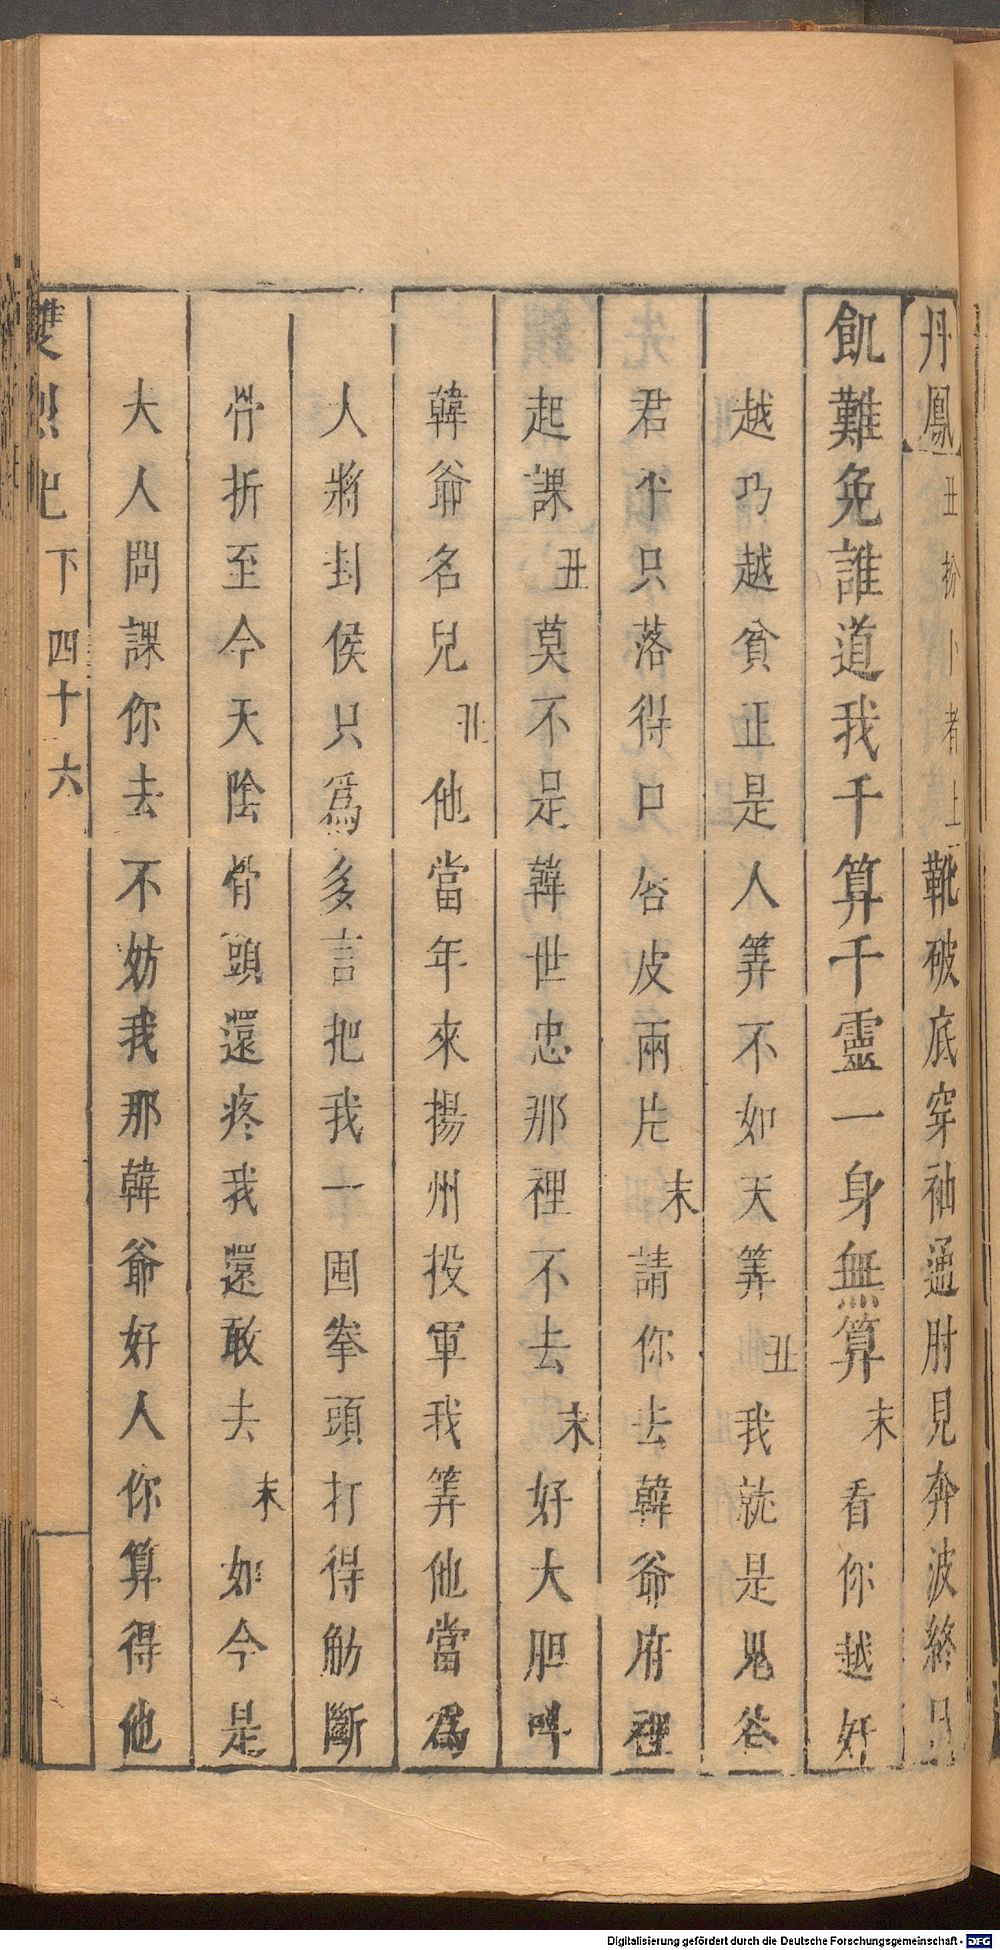 丹鳳丑扮卜者上靴破底穿袖通肘見奔波終日
飢難免誰道我千算千靈一身無算末看你越好
越乃越貧正是人筭不如天筭丑我就是鬼谷
君平只落得口唇皮兩片末請你去韓爺府裡
起課丑莫不是韓世忠那裡不去末好大胆呌
韓爺名兒丑他當年來揚州投軍我筭他當爲
人將封侯只爲多言把我一囤拳頭打得觔斷
骨折至今天陰骨頭還疼我還敢去末如今是
大人問課你去不妨我那韓爺好人你算得他
雙烈記 下 四十六
Digitalisierung gefördert durch die Deutsche Forschungsgemeinschaft - DFG